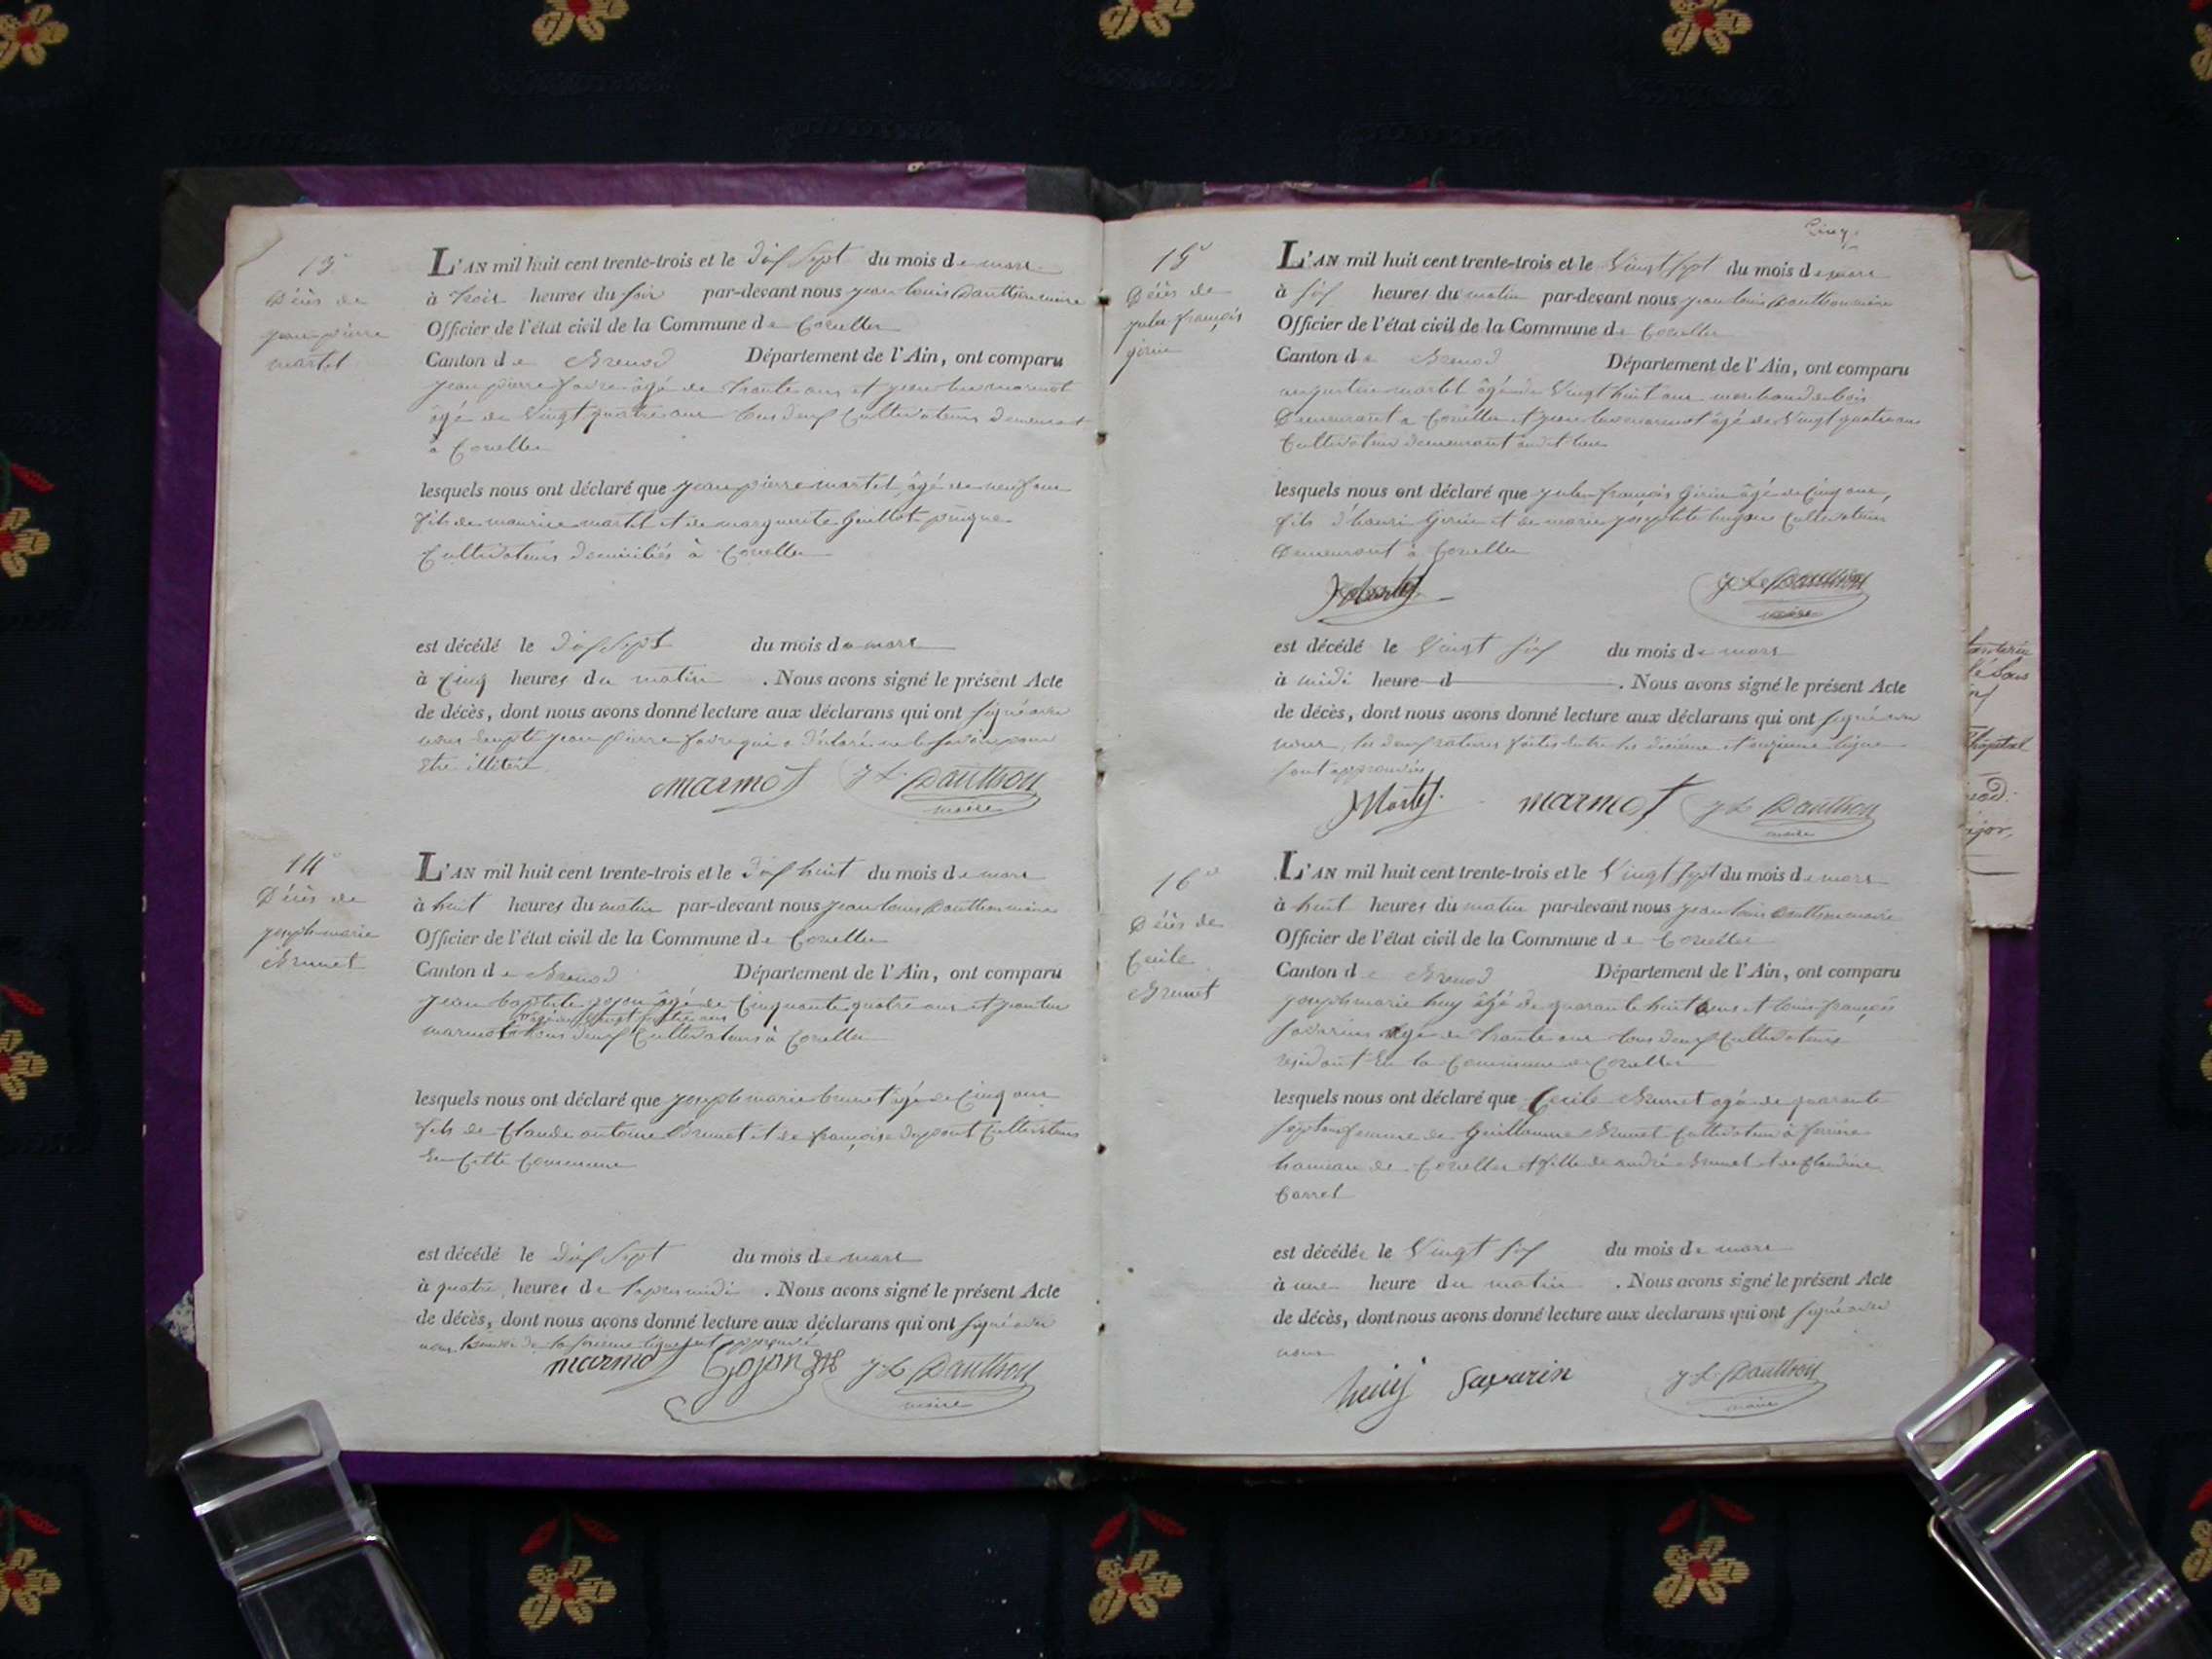 13
Décès de
jean pierre
martel
L'AN mil huit cent trente-trois et le dix sept du mois de mars
à trois heures du soir par-devant nous jean louis Dauthon maire
Officier de l'état civil de la Commune de Corcelles
Canton de Brenod Département de l'Ain, ont comparu
jean pierre favre âgé de trente ans et jean luc marmot
âgé de vingt quatre ans tous deux cultivateurs demeurant
à Corcelles
lesquels nous ont déclaré que jean pierre martel, âgé de neuf ans
fils de maurice martel et de marguerite Guillot
Cultivateurs domiciliés à Corcelles
est décédé le dix sept du mois de mars
à cinq heures du matin . Nous avons signé le présent Acte
de décès, dont nous avons donné lecture aux déclarans qui ont signé avec
nous excepté jean pierre favre qui a déclaré ne le savoir pour
être illitéré
marmot J L Dauthon
maire
14
Décès de
joseph marie
Brunet
L'AN mil huit cent trente-trois et le dix huit du mois de mars
à huit heures du matin par-devant nous jean louis Dauthon maire
Officier de l'état civil de la Commune de Corcelles
Canton de Brenod Département de l'Ain, ont comparu
jean baptiste gojon âgé de cinquante quatre ans et jean luc
âgé de vingt quatre ans
marmot tous deux Cultivateurs à Corcelles
lesquels nous ont déclaré que joseph marie brunet âgé de cinq ans
fils de Claude antoine Brunet et de françoise dupont Cultivateurs
en cette Commune
est décédé le dix sept du mois de mars
à quatre heures de l'après midi . Nous avons signé le présent Acte
de décès, dont nous avons donné lecture aux déclarans qui ont signé avec
nous, le renvoi de la sixième ligne est approuvé
marmot Gojon J L Dauthon
maire
Cinq
15
Décès de
jules françois
girin
L'AN mil huit cent trente-trois et le vingt sept du mois de mars
à six heures du matin par-devant nous jean louis Dauthon maire
Officier de l'état civil de la Commune de Corcelles
Canton de Brenod Département de l'Ain, ont comparu
augustin martel âgé de vingt huit ans marchand de bois
Demeurant à Corcelles et jean luc marmot âgé de vingt quatre ans
Cultivateur demeurant audit lieu
lesquels nous ont déclaré que jules françois Girin âgé de cinq ans,
fils d'henri Girin et de marie josephte hugon Cultivateurs
Demeurant à Corcelles
J L Dauthon
maire
est décédé le vingt six du mois de mars
à midi heure d . Nous avons signé le présent Acte
de décès, dont nous avons donné lecture aux déclarans qui ont signé avec
nous, les deux ratures faites entre les dixième et onzième ligne
sont approuvées
Martel marmot J L Dauthon
maire
16
Décès de
Cecile
Brunet
L'AN mil huit cent trente-trois et le vingt sept du mois de mars
à huit heures du matin par-devant nous jean louis Dauthon maire
Officier de l'état civil de la Commune de Corcelles
Canton de Brenod Département de l'Ain, ont comparu
joseph marie huy âgé de quarante huit ans et louis françois
savarin âgé de trente ans tous deux Cultivateurs
résidant en la Commune de Corcelles
lesquels nous ont déclaré que Cecile Brunet agée de quarante
sept ans femme de Guillaume Brunet Cultivateur à
hameau de Corcelles et fille de andré Brunet et de Claudine
Carrel
est décédée le vingt six du mois de mars
à une heure du matin . Nous avons signé le présent Acte
de décès, dont nous avons donné lecture aux declarans qui ont signé avec
nous
Savarin J L Dauthon
maire
l'hôpital